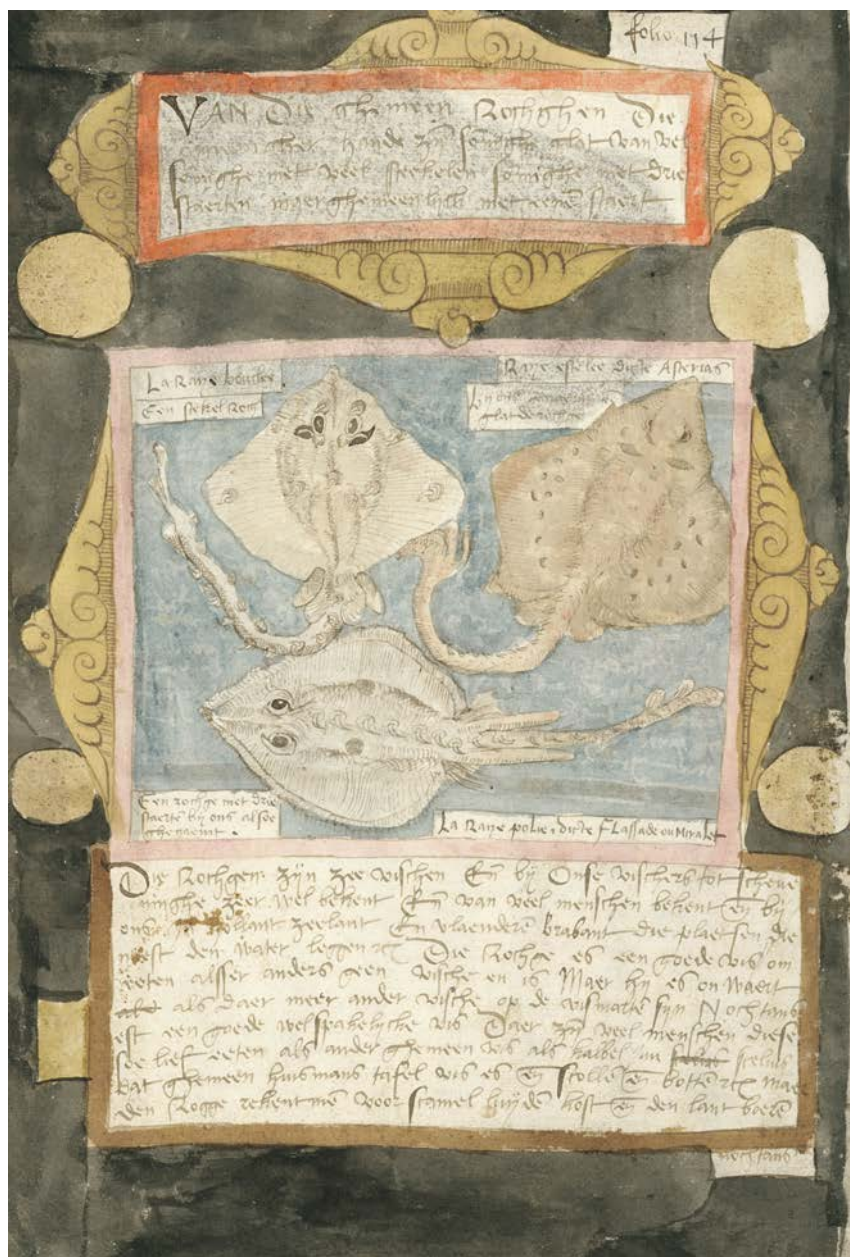 folio 114
VAN Die ghemeen Rochghen Die
hande zÿn somighe glat van vel
somighe met veel steekelen somighe met drie
staerten maer ghemeenlyck met eenē staert
La Raye bouclee.
Een stekel Roch
Raye estelee dicte Asterias
bÿ ons
gladde rochge
Een rochge met drie
staertē bÿ ons alsoe
ghenaemt.
La Raye polie, dicte FLassade ou Miralet
Die Rochgen zÿn zee visschen Eñ bÿ Onse visschers tot scheve
ninghe zeer wel bekent Eñ van veel menschen bekent eñ bÿ
ons hollant zeelant En vlaenderen brabant die plaetsen die
naest den water leggen etc Die Rochge es een goede vis om
eeten alsser anders geen vische en is Maer hÿ es onwaert
als daer meer ander vische op de vismartē sÿn Nochtans
est een goede welsmakelÿche vis Daer zÿn veel menschen diese
soe lief eeten als ander ghemeen vis als kabbel
dat ghemeen huismans tafel vis es eñ scollē eñ bottē etc maer
den Rogge rekentmē voor scamel luÿdē kost eñ den lant boerē
nochtans